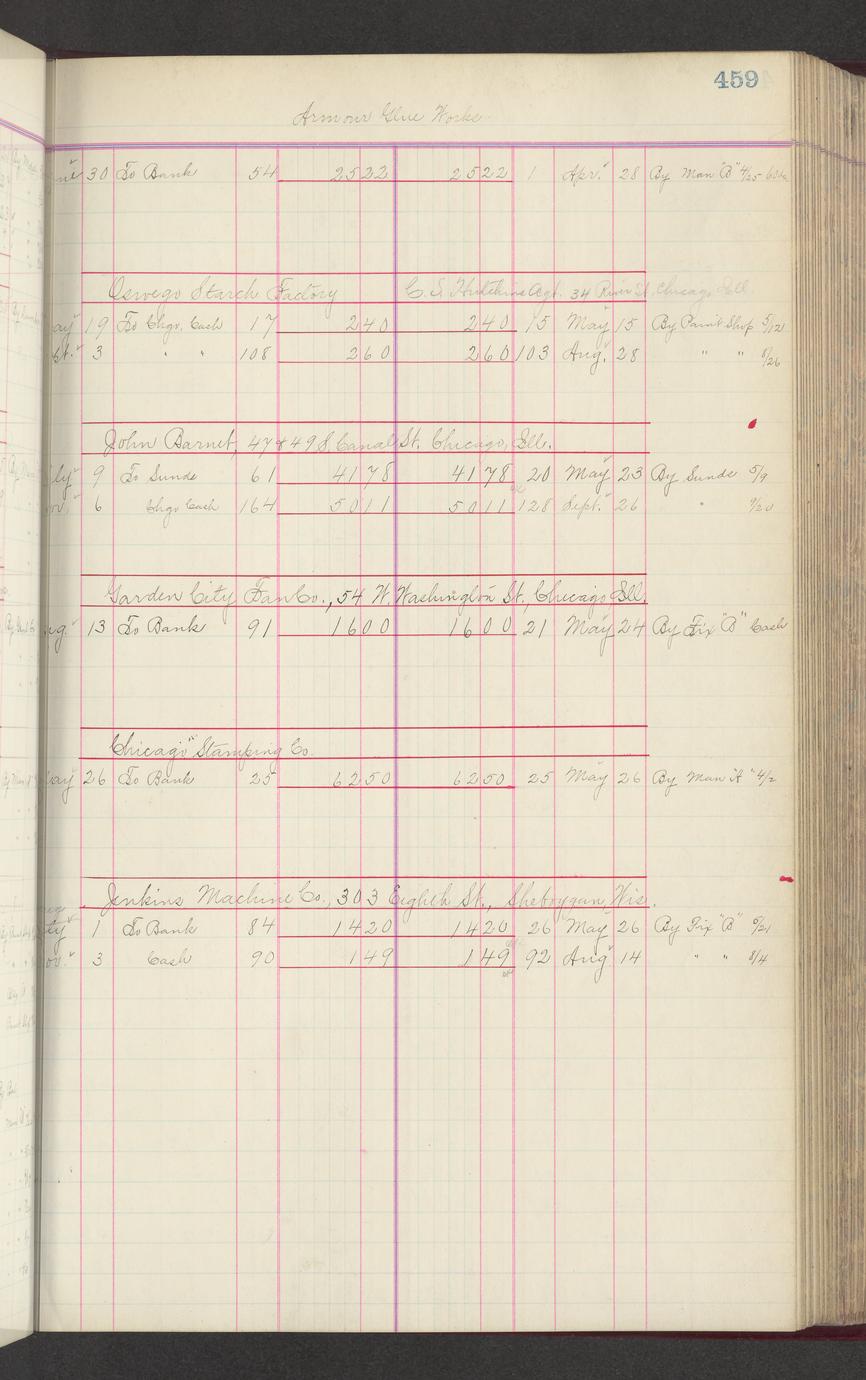 459
Armour Glue Works
30 To Bank 54 2522 2522 1 Apr. 28 By Man "B" 4/25
Oswego Starch Factory C. S. Hutchins Agt. 34 River St. Chicago Ill.
19 To Chgo. Cash 17 240 240 15 May 15 By Paint Shop 5/12
3 " " 108 260 260 103 Aug. 28 " " 8/26
John Barnet, 47 & 49 S. Canal St. Chicago, Ill.
9 To Sunds 61 4178 4178 20 May 23 By Sunds 5/9
6 Chgo Cash 164 5011 5011 128 Sept. 26 " 9/20
Garden City Fan Co., 54 W. Washington St., Chicago, Ill.
13 To Bank 91 1600 1600 21 May 24 By Fix "B" Cash
Chicago Stamping Co.
26 To Bank 25 6250 6250 25 May 26 By Man "A" 4/2
Jenkins Machine Co., 303 Eighth St., Sheboygan, Wis.
1 To Bank 84 1420 1420 26 May 26 By Fix "B" 5/21
3 Cash 90 149 149 92 Aug 14 " " 8/4